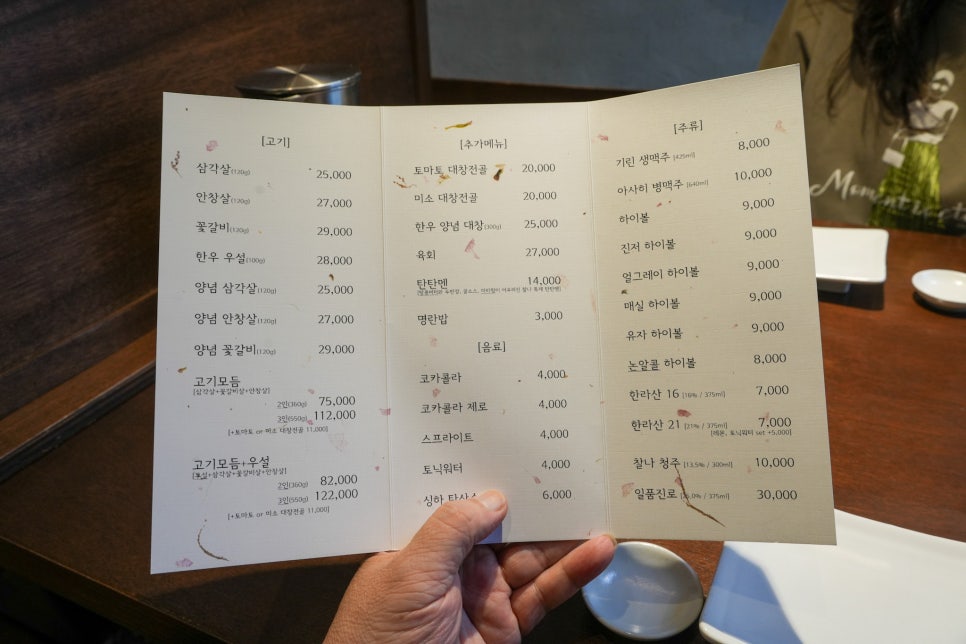 [고기]
삼각살(120g) 25,000
안창살(120g) 27,000
꽃갈비(120g) 29,000
한우 우설(100g) 28,000
양념 삼각살(120g) 25,000
양념 안창살(120g) 27,000
양념 꽃갈비(120g) 29,000
고기모듬
[삼각살+꽃갈비살+안창살]
2인(360g) 75,000
3인(550g) 112,000
[+토마토 or 미소 대창전골 11,000]
고기모듬+우설
[우설+삼각살+꽃갈비살+안창살]
2인(360g) 82,000
3인(550g) 122,000
[+토마토 or 미소 대창전골 11,000]
[추가메뉴]
토마토 대창전골 20,000
미소 대창전골 20,000
한우 양념 대창(300g) 25,000
육회 27,000
탄탄멘 14,000
명란밥 3,000
[음료]
코카콜라 4,000
코카콜라 제로 4,000
스프라이트 4,000
토닉워터 4,000
싱하 6,000
[주류]
기린 생맥주 [425ml] 8,000
아사히 병맥주 [640ml] 10,000
하이볼 9,000
진저 하이볼 9,000
얼그레이 하이볼 9,000
매실 하이볼 9,000
유자 하이볼 9,000
논알콜 하이볼 8,000
한라산 16 [16% / 375ml] 7,000
한라산 21 [21% / 375ml] 7,000
[레몬, 토닉워터 set +5,000]
찰나 청주 [13.5% / 300ml] 10,000
일품진로 / 375ml] 30,000